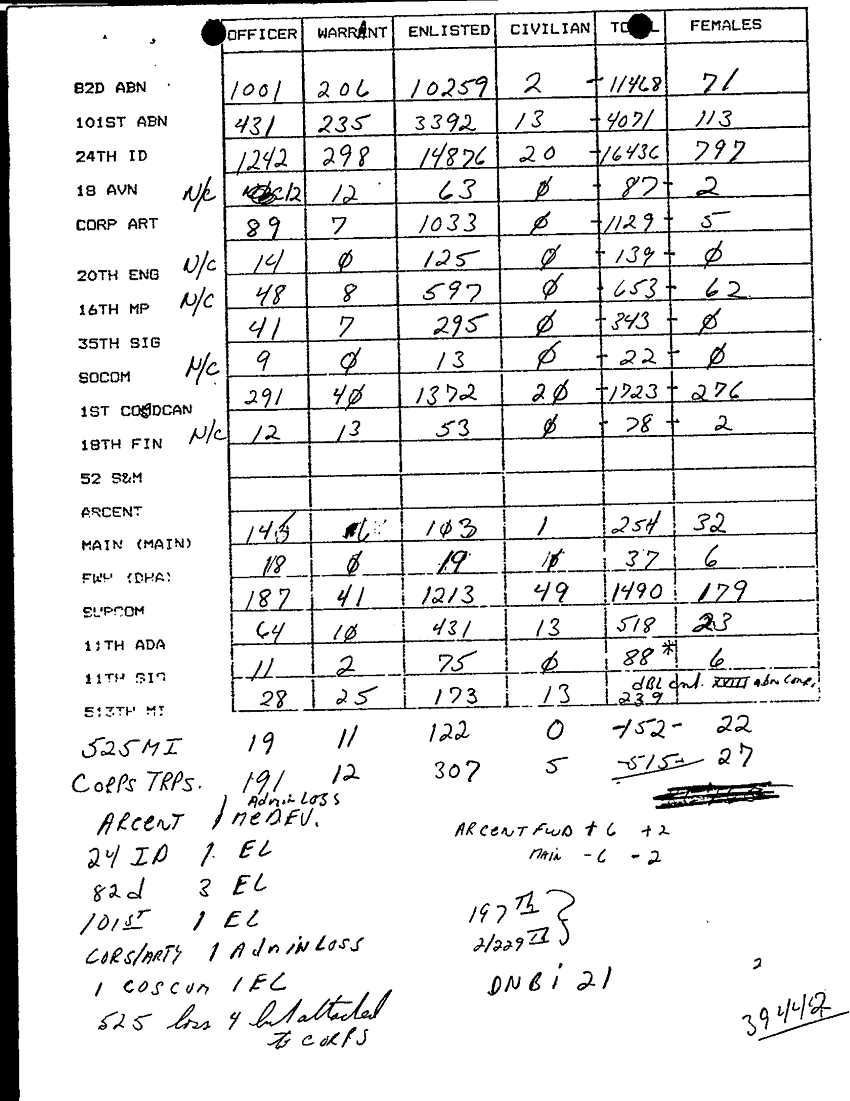 OFFICER WARRANT ENLISTED CIVILIAN TOTAL FEMALES
82D ABN 1001 206 10259 2 -11468 71
101ST ABN 431 235 3392 13 -4071 113
24TH ID 1242 298 14876 20 -16436 797
18 AVN N/C 12 12 63 Ø - 87 - 2
CORP ART 89 7 1033 Ø -1129 - 5
20TH ENG N/C 14 Ø 125 Ø - 139 - Ø
16TH MP N/C 48 8 597 Ø - 653 - 62
35TH SIG 41 7 295 Ø -343 - Ø
SOCOM N/C 9 Ø 13 Ø - 22 - Ø
1ST COSCAN 291 4Ø 1372 2Ø -1723 - 276
18TH FIN N/C 12 13 53 Ø - 78 - 2
52 S&M
ARCENT
MAIN (MAIN) 6 1Ø3 1 254 32
FWD (DHA) 18 Ø 19 37 6
SUPCOM 187 41 1213 49 1490 179
11TH ADA 64 1Ø 431 13 518 23
11TH SIG 11 2 75 Ø 88 * 6
dBL cnt. XVIII abn Corp.
513TH MI 28 25 173 13 239
525 MI 19 11 122 0 -152- 22
CORPS TRPS. 191 12 307 5 -515- 27
Admin Loss
ARCENT 1 MEDEV.
24 ID 1 EL
82d 3 EL
101ST 1 EL
CORS/ARTY 1 Admin Loss
1 COSCOM 1 EL
525 loss 4 but attached
to CORPS
ARCENT FWD + 6 + 2
MAIN - 6 - 2
197
2/229
DNBi 21
2
39442